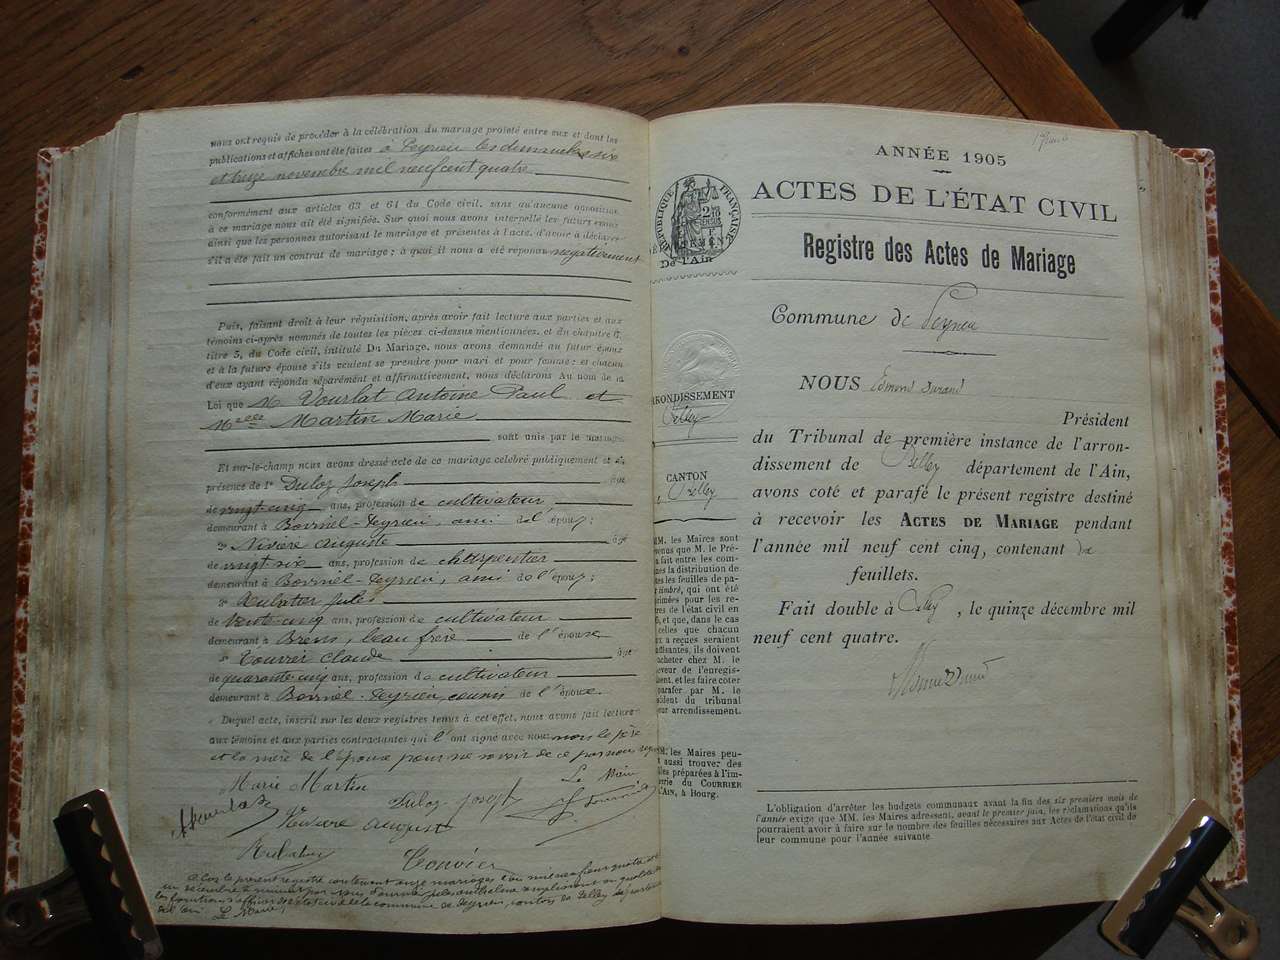 nous ont requis de procéder à la célébration du mariage projeté entre eux et dont les
publications et affiches ont été faites à Peyrieu les dimanches six
et treize novembre mil neuf cent quatre
conformément aux articles 63 et 64 du Code civil, sans qu'aucune opposition
à ce mariage nous ait été signifiée. Sur quoi nous avons interpellé les futurs époux
ainsi que les personnes autorisant le mariage et présentes à l'acte, d'avoir à déclarer
s'il a été fait un contrat de mariage; à quoi il nous a été répondu négativement
Puis, faisant droit à leur réquisition, après avoir fait lecture aux parties et aux
témoins ci-après nommés de toutes les pièces ci-dessus mentionnées, et du chapitre 6,
titre 5, du Code civil, intitulé Du Mariage, nous avons demandé au futur époux
et à la future épouse s'ils veulent se prendre pour mari et pour femme; et chacun
d'eux ayant répondu séparément et affirmativement, nous déclarons Au nom de la
Loi que M. Vourlat Antoine Paul et
Melle Martin Marie
sont unis par le mariage
Et sur-le-champ nous avons dressé acte de ce mariage célébré publiquement et en
présence de 1° Duloz Joseph âgé
de vingt cinq ans, profession de cultivateur
demeurant à Borniel-Peyrieu, ami de l'époux;
2° Rivière Auguste âgé
de vingt six ans, profession de charpentier
demeurant à Borniel-Peyrieu, ami de l'époux;
3° Jules
de trente cinq ans, profession de cultivateur
demeurant à Brens, beau frère de l'épouse
4° Touvier Claude âgé
de quarante cinq ans, profession de cultivateur
demeurant à Borniel-Peyrieu, cousin de l'épouse.
Duquel acte, inscrit sur les deux registres tenus à cet effet, nous avons fait lecture
aux témoins et aux parties contractantes qui l'ont signé avec nous non le père
et la mère de l'épouse pour ne savoir de ce par nous requis
Marie Martin Duloz Joseph Le Maire
Rivière August
Touvier
Clos le present registre contenant onze mariages
Le Maire
ANNÉE 1905
ACTES DE L'ÉTAT CIVIL
Registre des Actes de Mariage
RÉPUBLIQUE FRANÇAISE
De l'Ain
Commune de Peyrieu
NOUS Edmond Durand
Président
du Tribunal de première instance de l'arron-
dissement de Belley département de l'Ain,
avons coté et parafé le présent registre destiné
à recevoir les ACTES DE MARIAGE pendant
l'année mil neuf cent cinq, contenant dix
feuillets.
Fait double à Belley, le quinze décembre mil
neuf cent quatre.
RONDISSEMENT
Belley
CANTON
Belley
MM. les Maires sont
venus que M. le Pré-
a fait entre les com-
s la distribution de
es les feuilles de pa-
timbré, qui ont été
rimées pour les re-
res de l'état civil en
5, et que, dans le cas
celles que chacun
x a reçues seraient
uffisantes, ils doivent
acheter chez M. le
veur de l'enregis-
nt, et les faire coter
parafer par M. le
sident du tribunal
eur arrondissement.
MM. les Maires peu-
t aussi trouver des
lles préparées à l'im-
erie du COURRIER
L'AIN, à Bourg.
L'obligation d'arrêter les budgets communaux avant la fin des six premiers mois de
l'année exige que MM. les Maires adressent, avant le premier juin, les réclamations qu'ils
pourraient avoir à faire sur le nombre des feuilles nécessaires aux Actes de l'état civil de
leur commune pour l'année suivante.